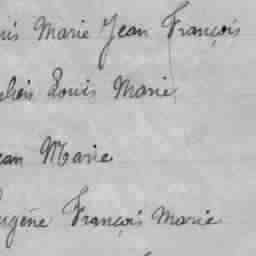 Marie Jean François
Louis Marie
Jean Marie
Eugène François Marie